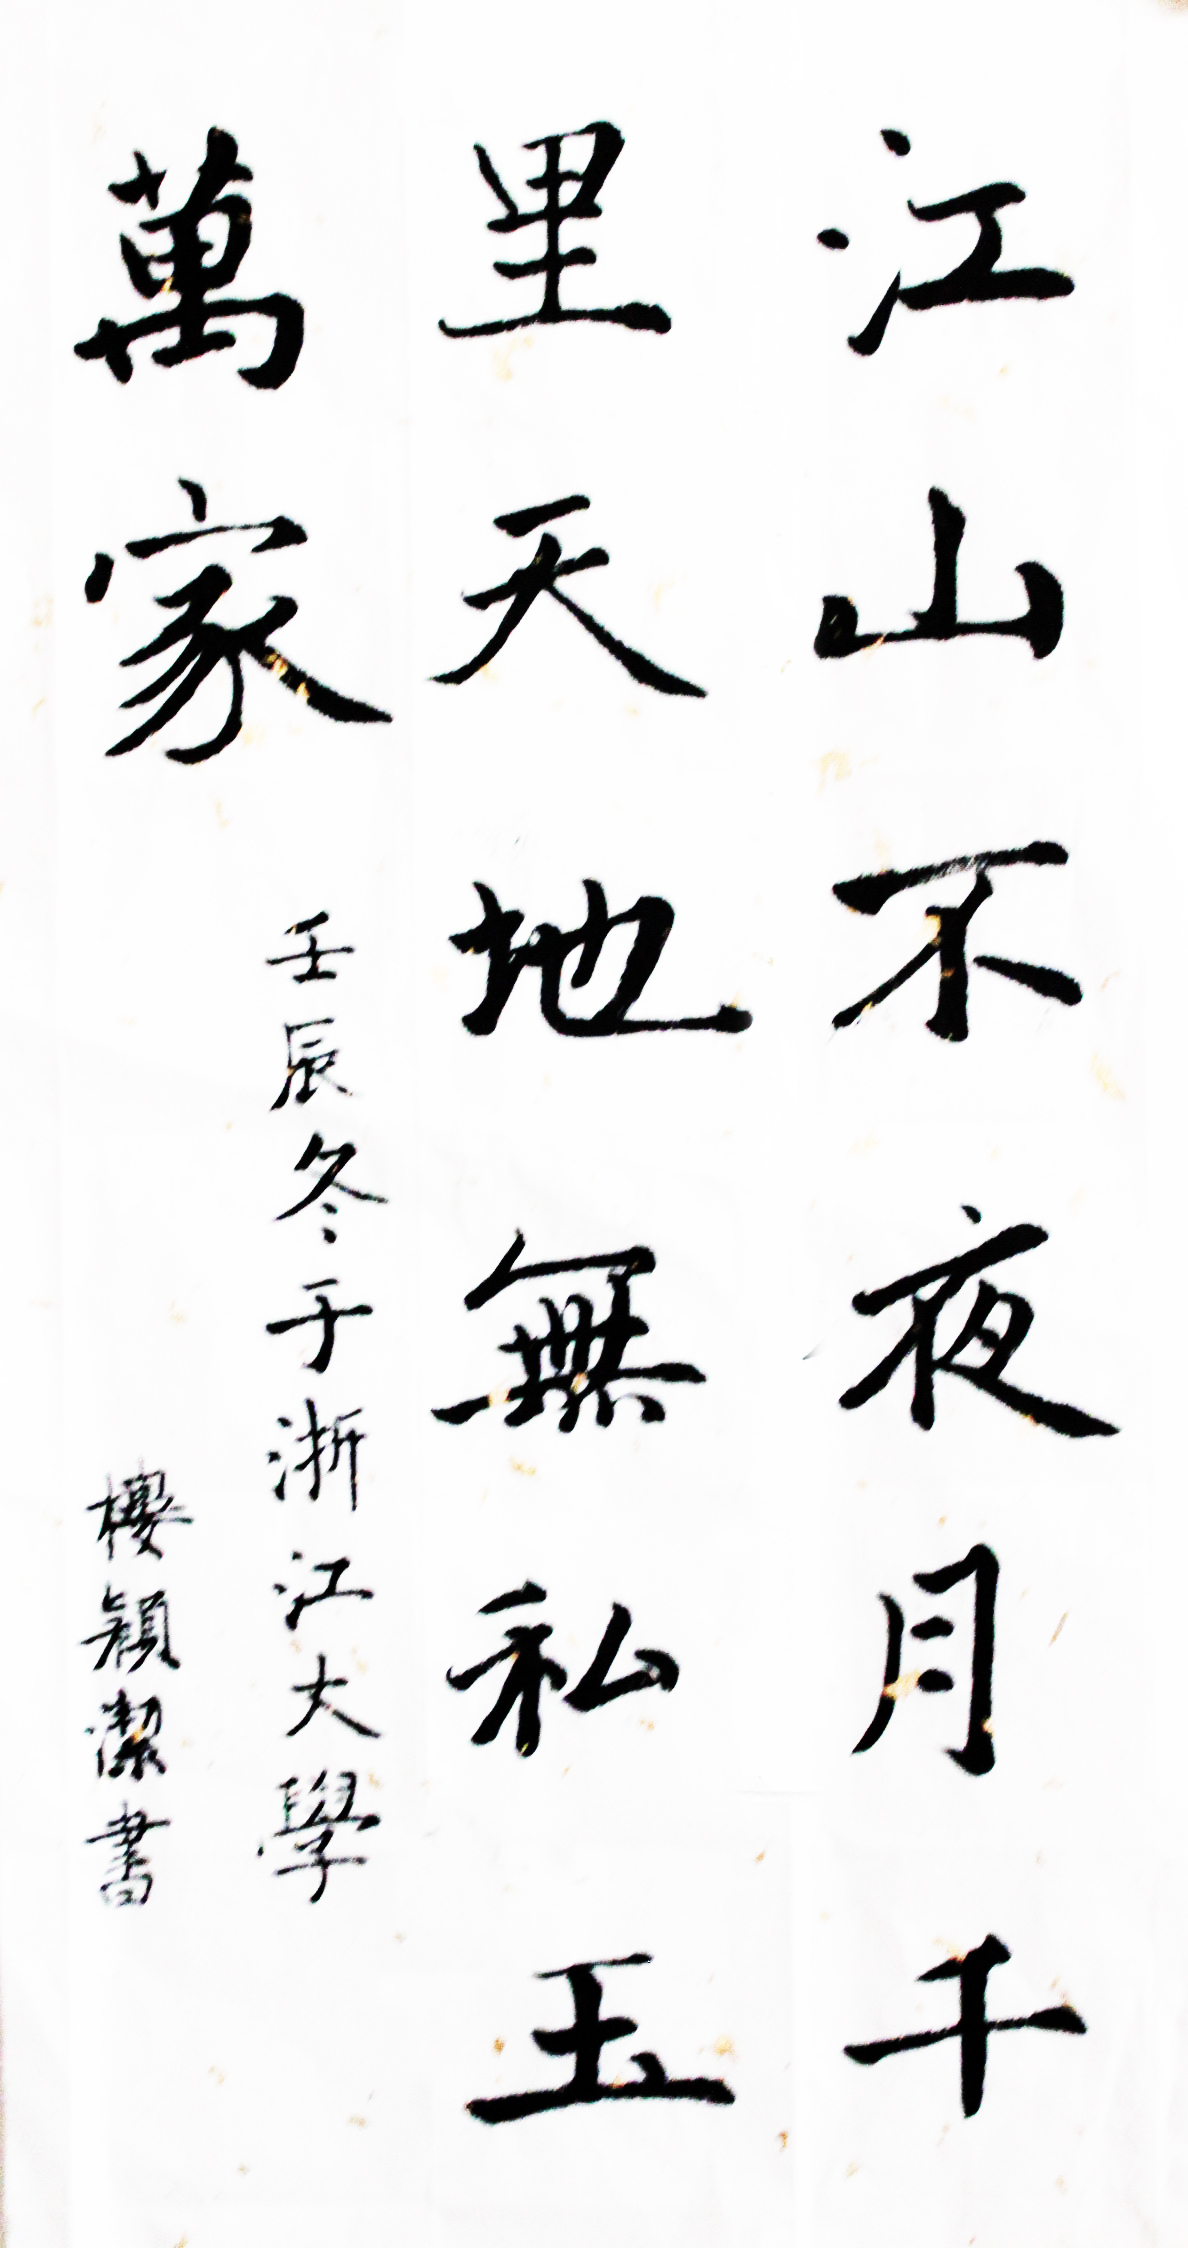 江山不夜月千
里天地無私玉
萬家
壬辰冬于浙江大學
樓穎潔書